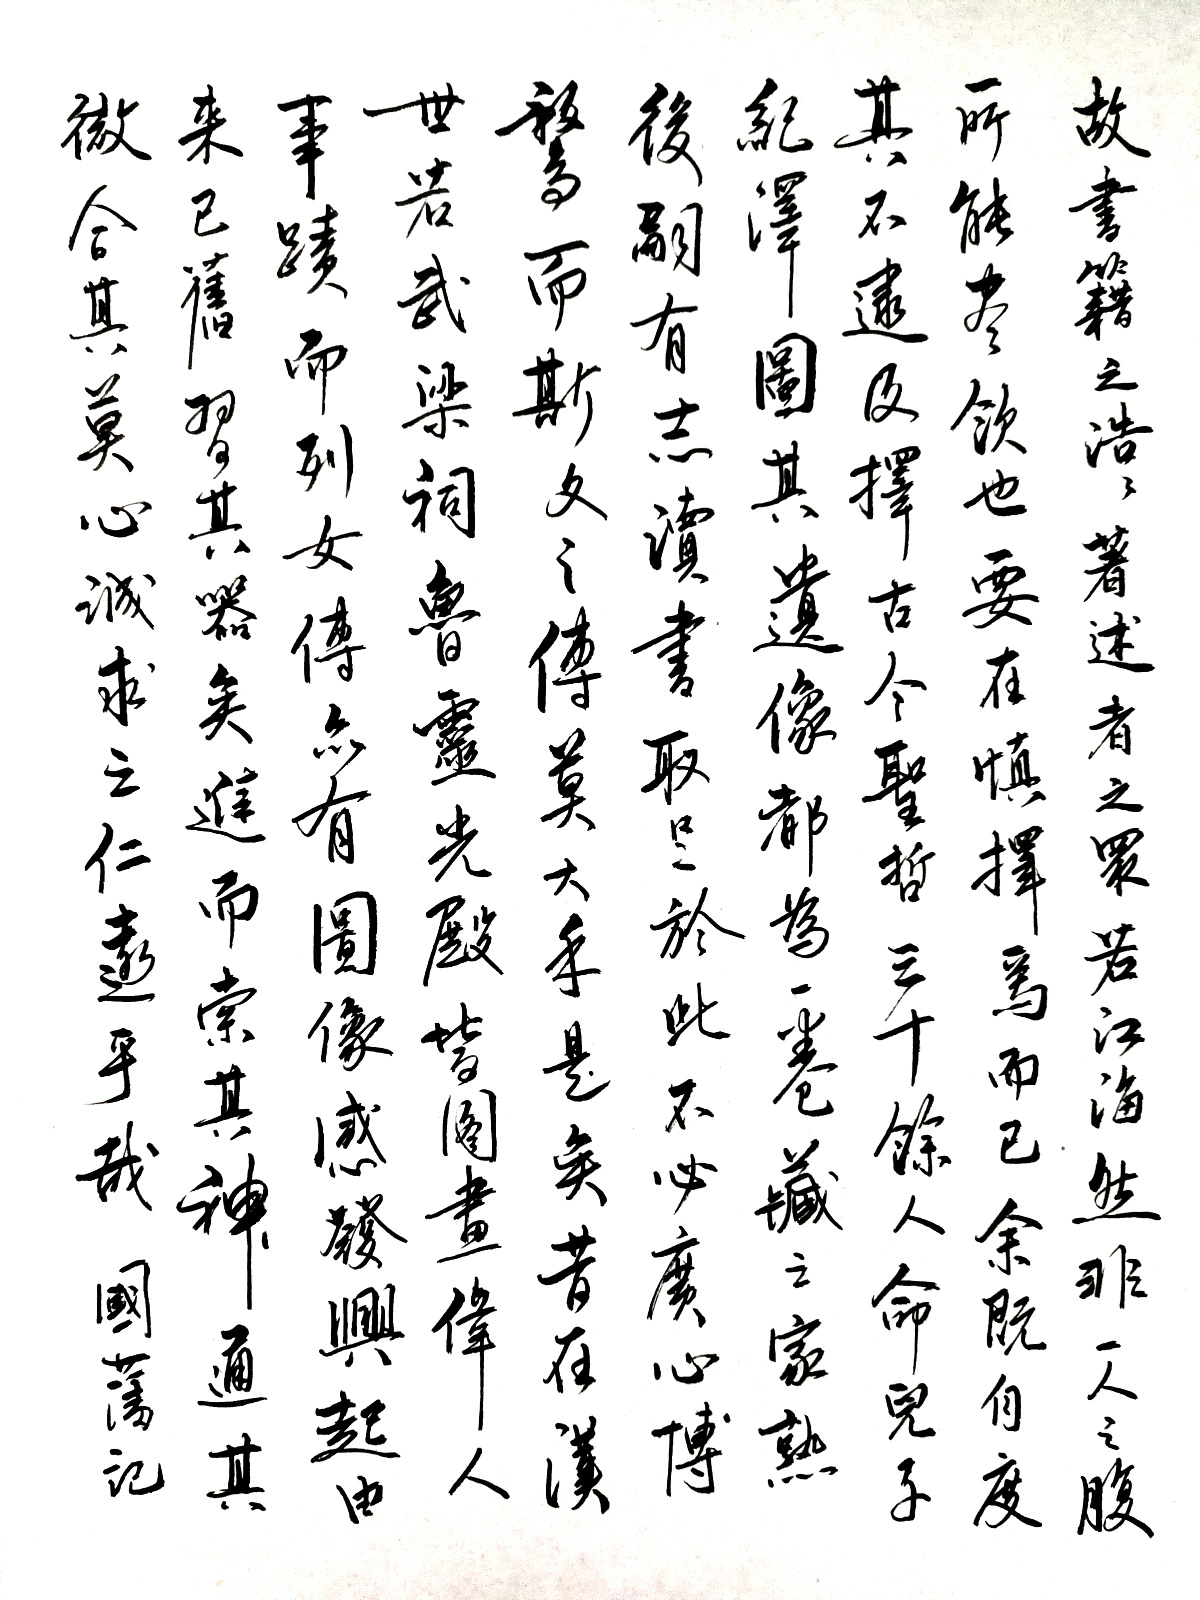 故書籍之浩々著述者之眾若江海然非一人之腹
所能尽飲也要在慎擇焉而已余既自度
其不逮及擇古今聖哲三十餘人命兒子
紀澤圖其遺像都為一卷藏之家塾
後嗣有志讀書取足於此不必廣心博
騖而斯文之傳莫大乎是矣昔在漢
世若武梁祠魯靈光殿皆图畫偉人
事蹟而列女傳亦有圖像感發興起由
来已舊習其器矣進而索其神通其
徵合其莫心誠求之仁遠乎哉 國藩記